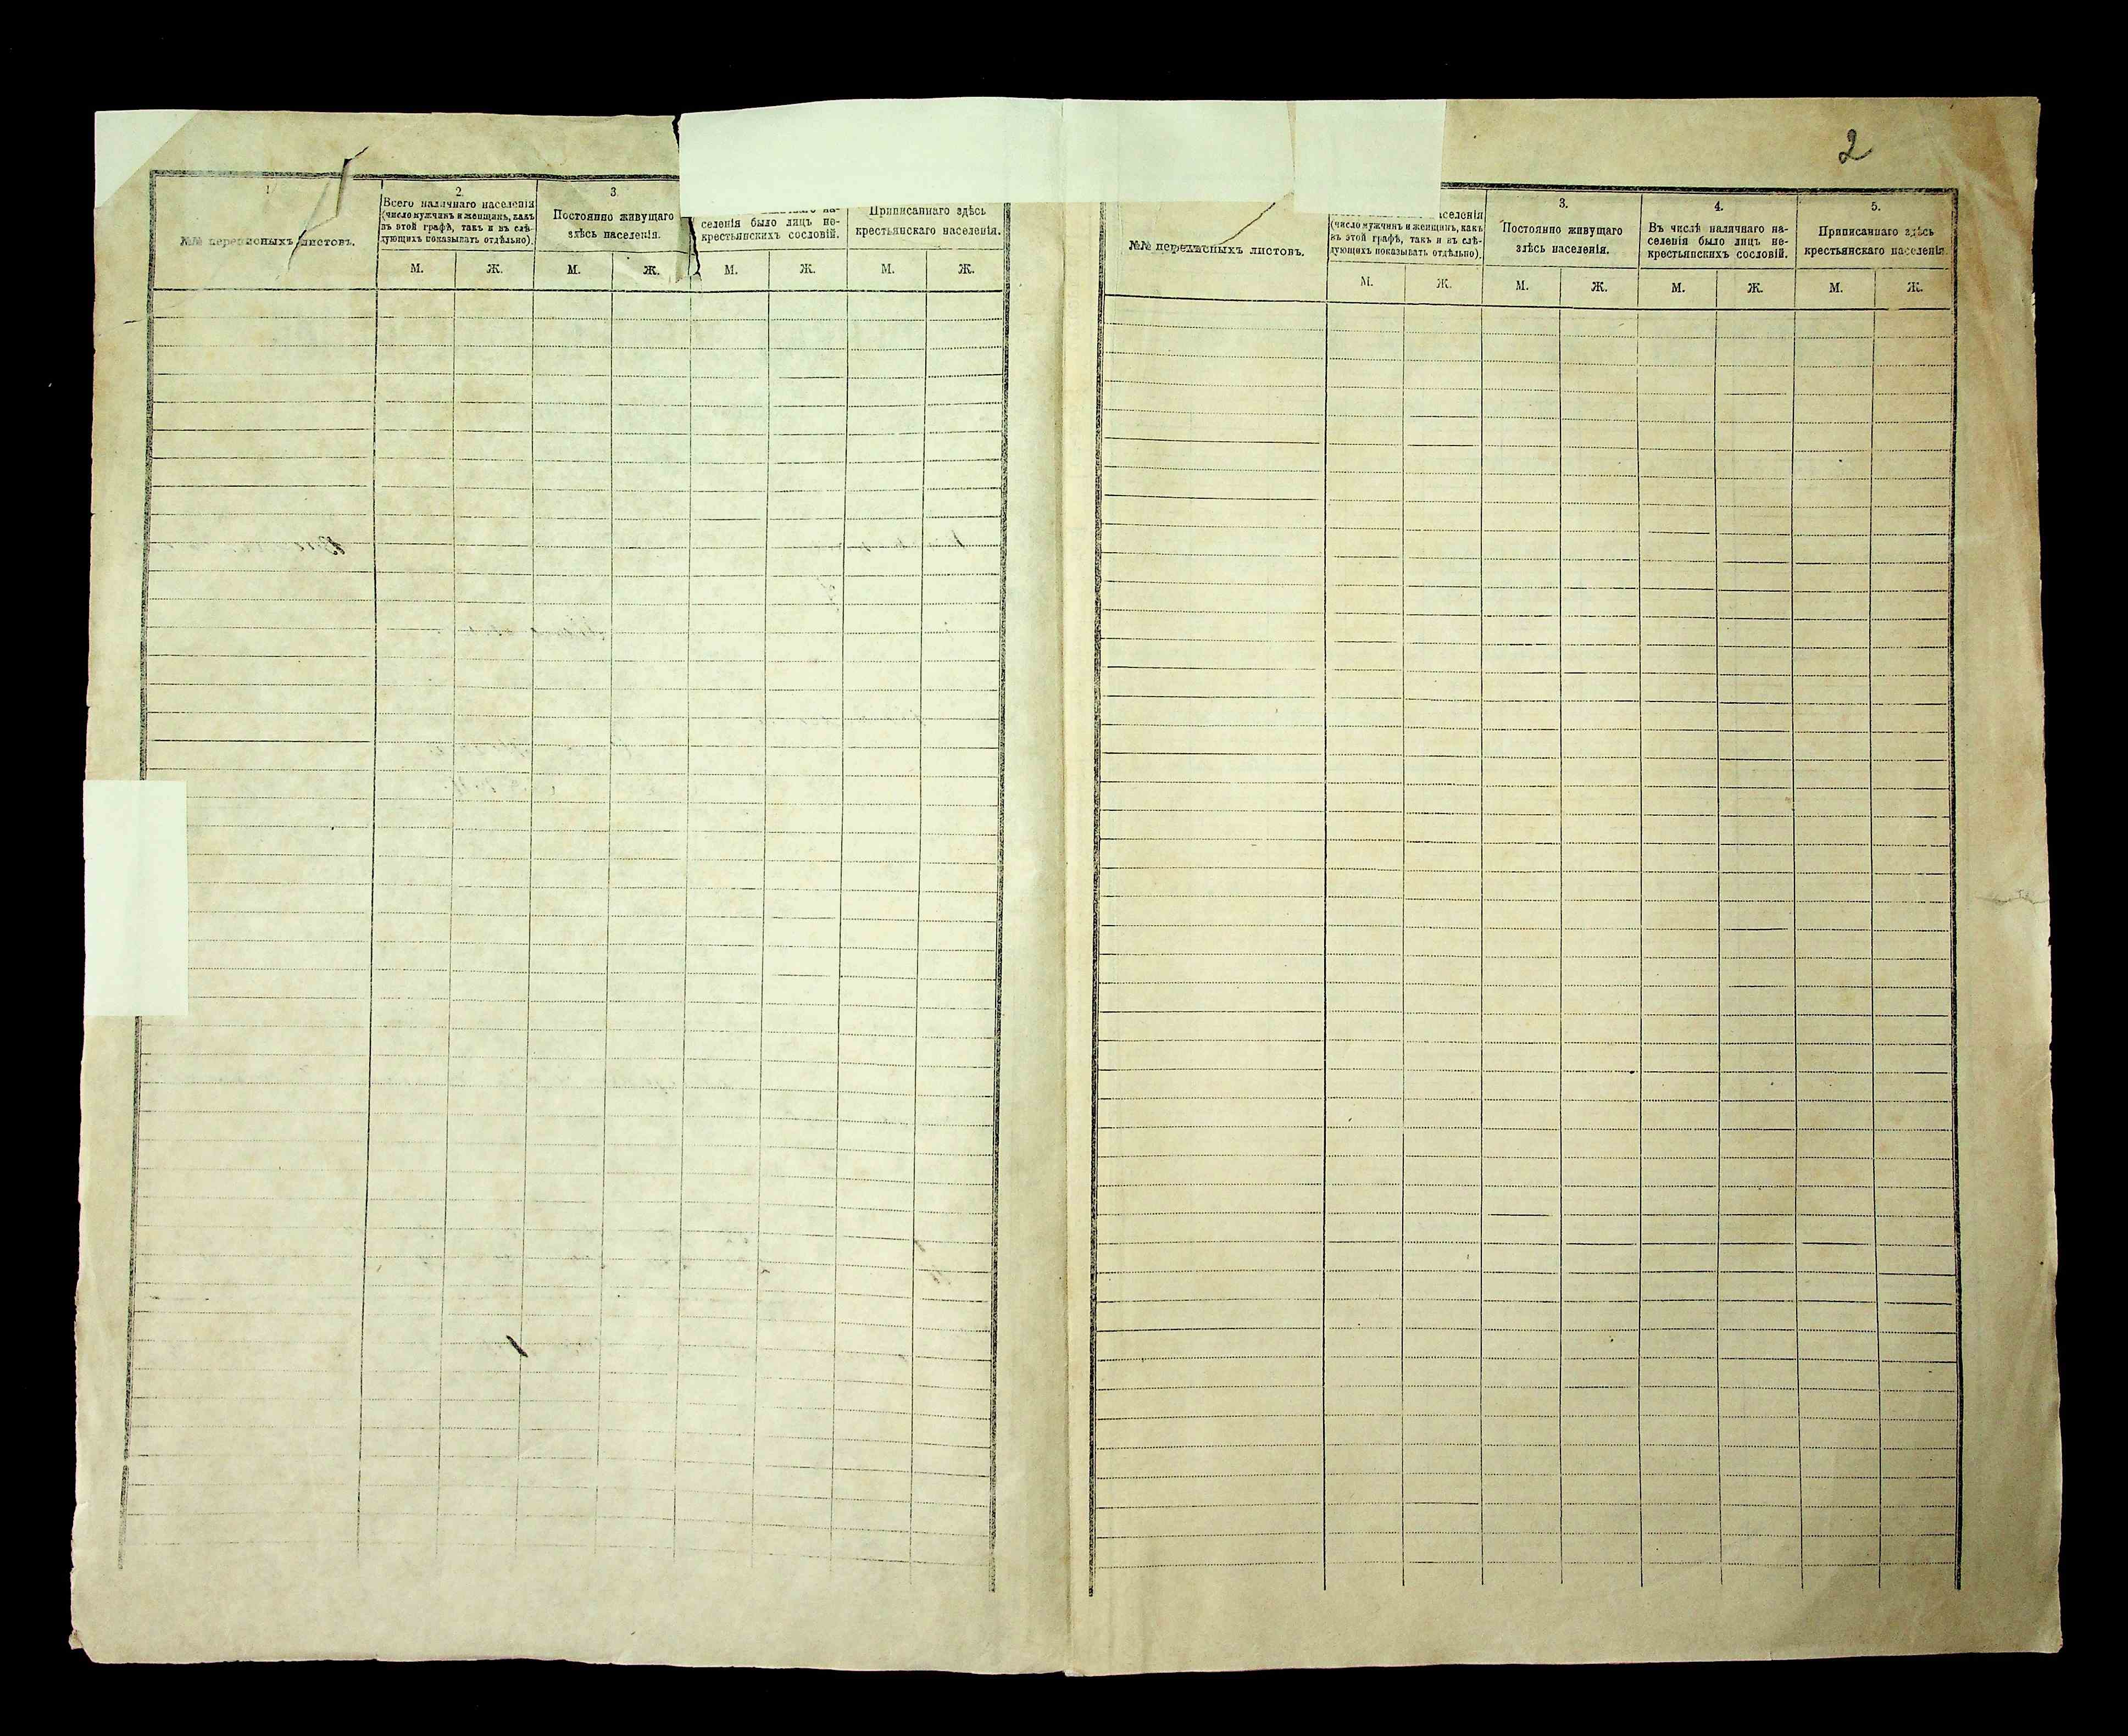 2
1
2.
3.
№№ переписныхъ листовъ.
Всего наличнаго населенія
(число мужчинъ и женщинъ, какъ
въ этой графѣ, такъ и въ слѣ-
дующихъ показывать отдѣльно).
Постоянно живущаго
здѣсь населенія.
селенія было лицъ не-
крестьянскихъ сословій.
Приписаннаго здѣсь
крестьянскаго населенія.
М. Ж. М. Ж. М. Ж. М. Ж.
3.
4.
5.
№№ переписныхъ листовъ.
населенія
(число мужчинъ и женщинъ, какъ
въ этой графѣ, такъ и въ слѣ-
дующихъ показывать отдѣльно).
Постоянно живущаго
здѣсь населенія.
Въ числѣ наличнаго на-
селенія было лицъ не-
крестьянскихъ сословій.
Приписаннаго здѣсь
крестьянскаго населенія.
М. Ж. М. Ж. М. Ж. М. Ж.